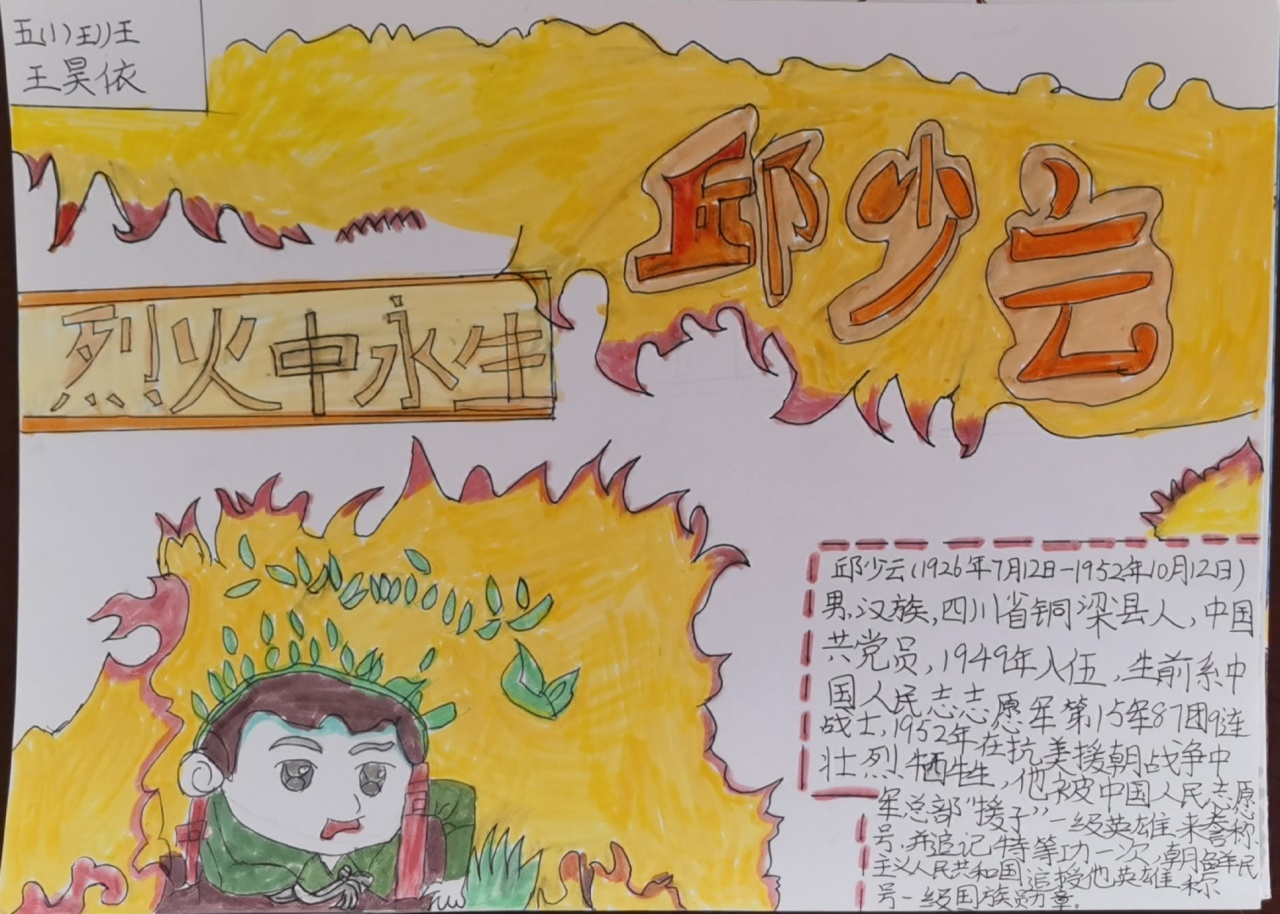 五(1)王王
王昊依
邱少云
烈火中永生
邱少云(1926年7月12日-1952年10月12日)
男,汉族,四川省铜梁县人,中国
共党员,1949年入伍,生前系中
国人民志志愿军第15军87团9连
战士,1952年在抗美援朝战争中
壮烈牺牲,他被中国人民志愿
军总部"援予"一级英雄来誉称
号,并追记特等功一次,朝鱼年民
主义人民共和国追授他英雄称
号一级国族勋章。